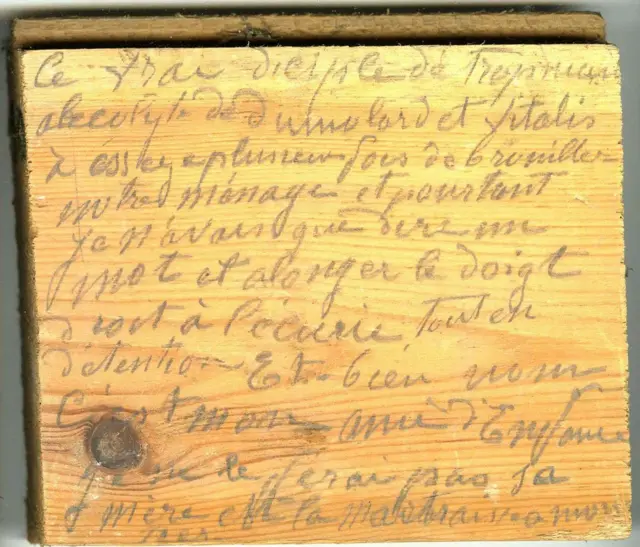 Ce vrai diciple de Tropmann
alecolyte de Dumolard et Vitalis
à éssayé plusieur fois de brouiller
notre ménage et pourtant
je n'avais que dire un
mot et alonger le doigt
droit à l'écurie, tout en
détention. Et bien nom
C'est mon ami d'Enfance
je ne le ferai pas sa
mère est la a mon